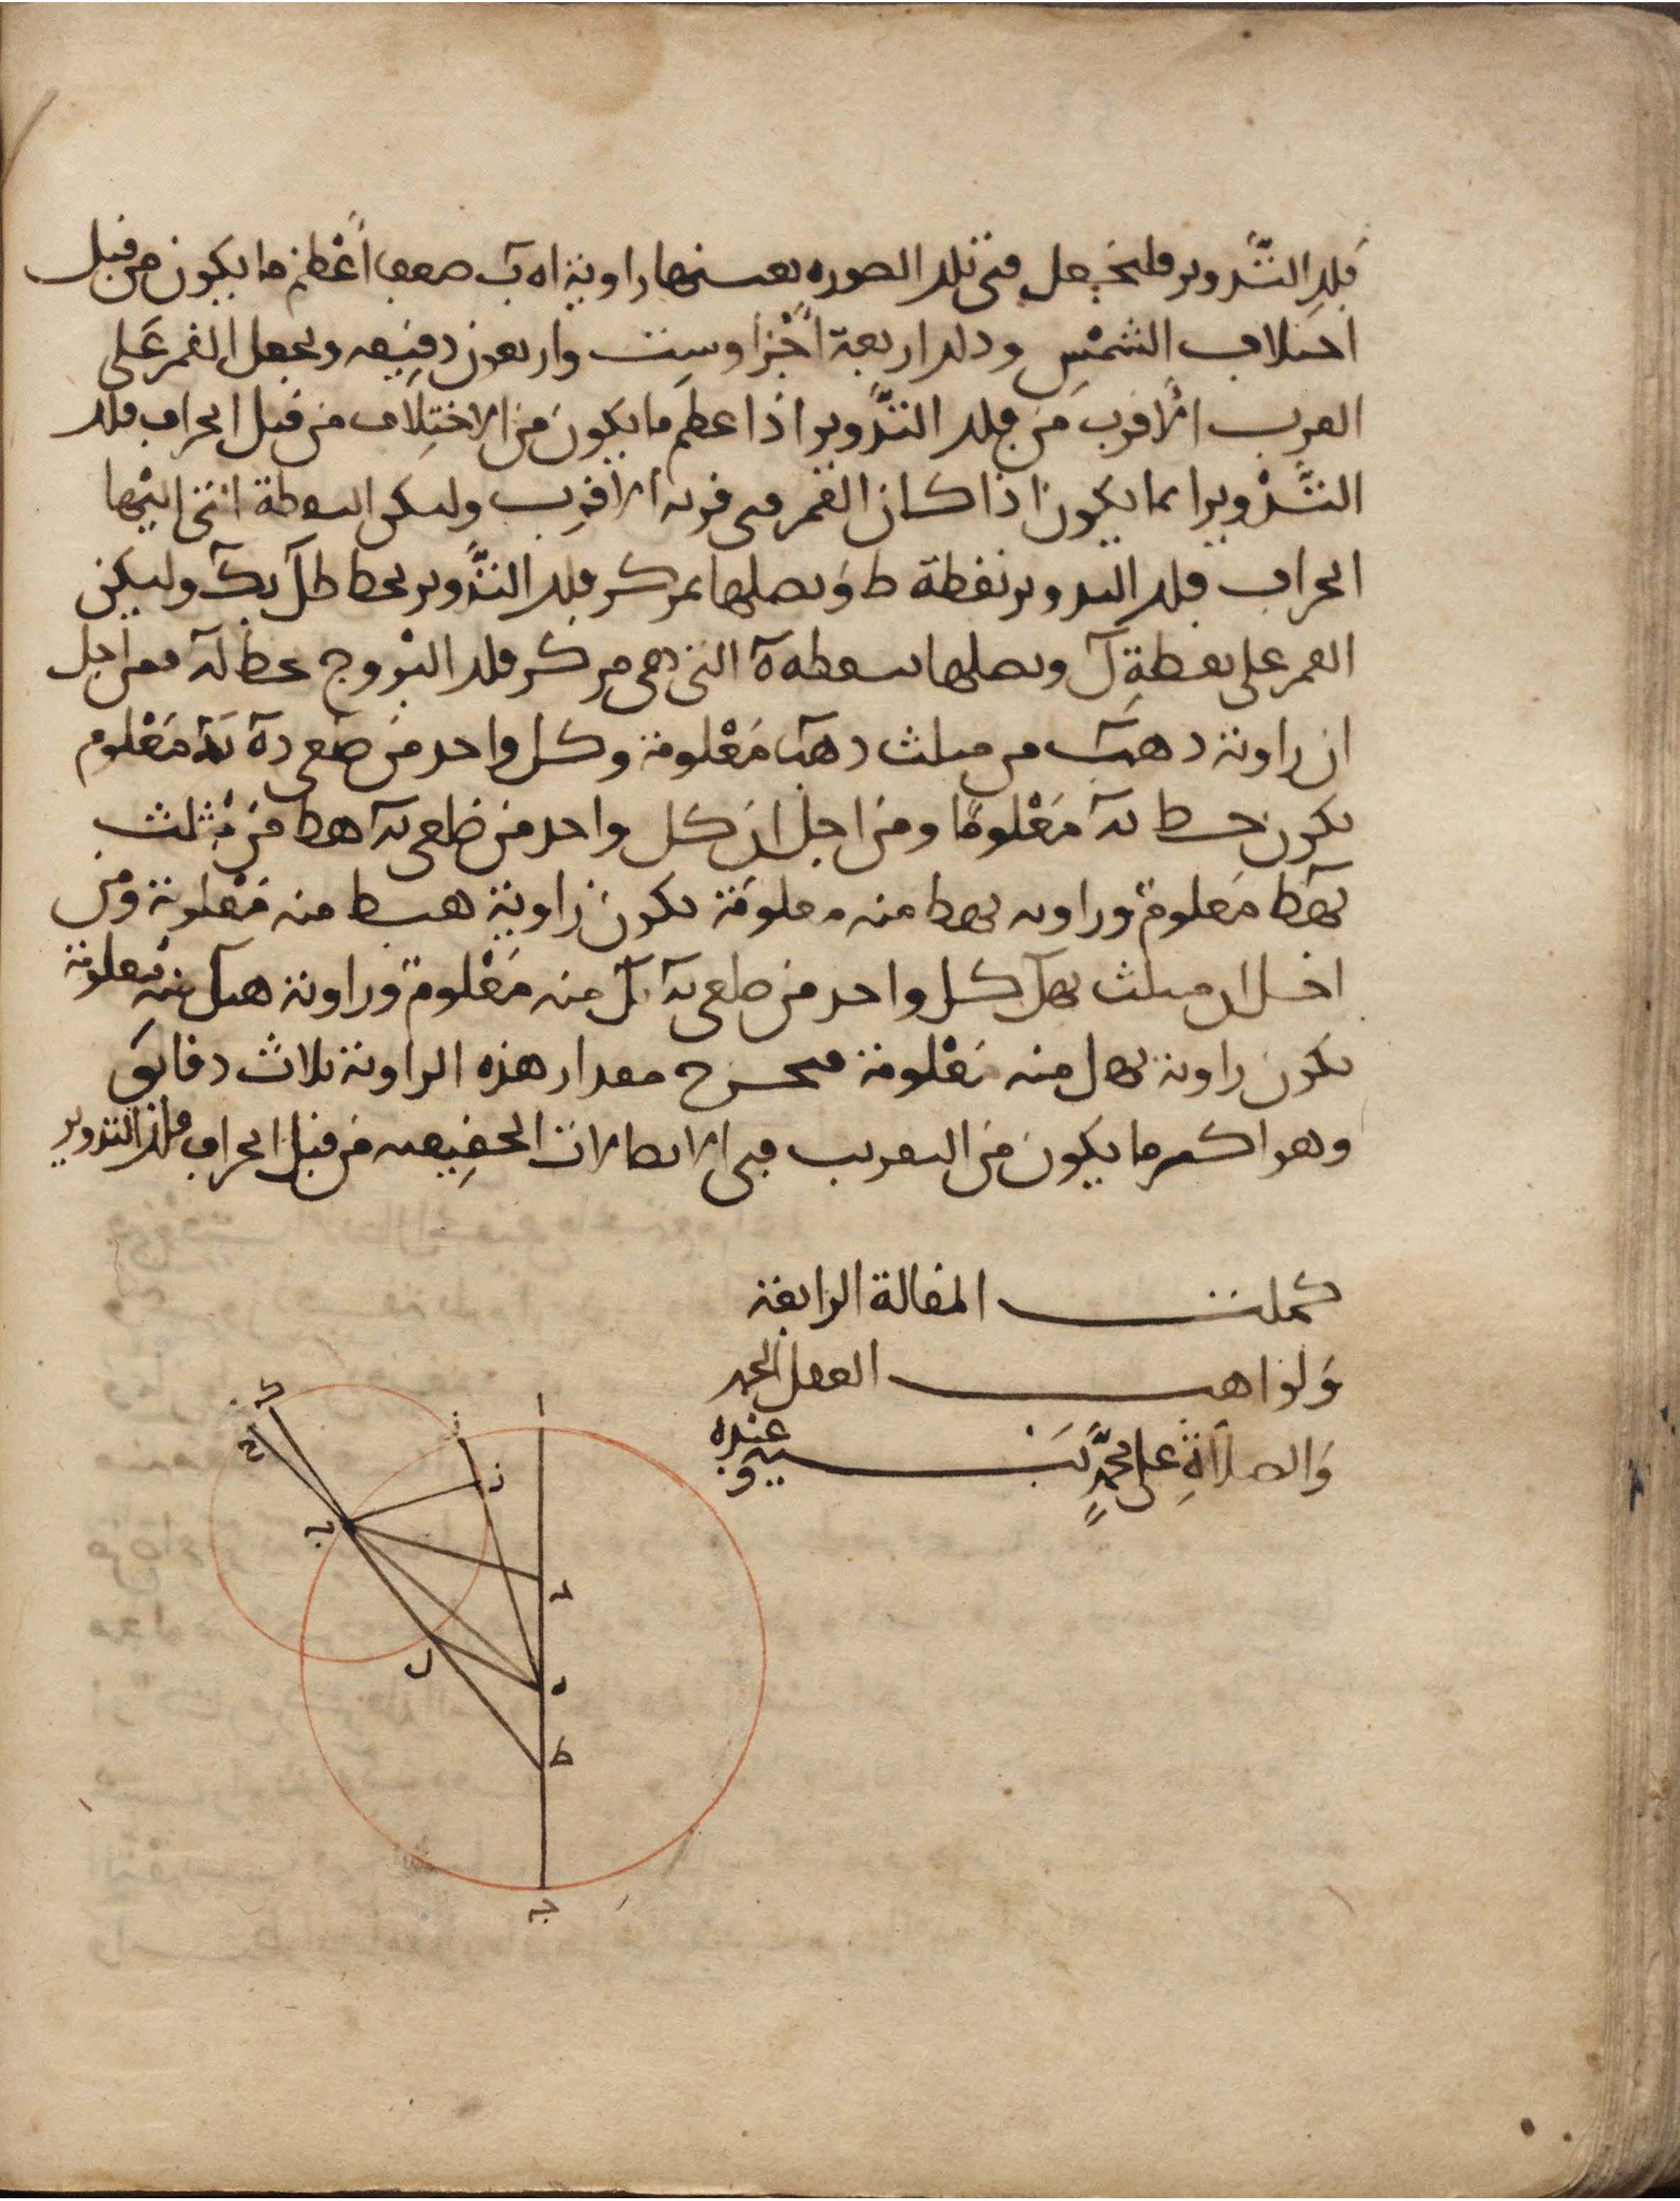 فلك التدوير فلنجعل في تلك الصورة بعينها زاوية اه ب ضعف أعظم ما يكون من قبل
اختلاف الشمس وذلك اربعة أجزا وست واربعون دقيقه ونجعل القمر على
القرب الأقرب من فلك التدوير اذ اعظم ما يكون من الاختلاف من قبل انحراف فلك
التدوير انما يكون اذا كان القمر في قربه الأقرب ولتكن النقطة التي اليها
انحراف فلك التدوير نقطة ط ونصلها بمركز فلك التدوير بخط ط ل ب ك وليكن
القمر على نقطة ل ونصلها بنقطة ه التي هي مركز فلك البروج بخط ل ه فمن اجل
ان زاوية د ه ب من مثلث د ه ب معلومة وكل واحد من ضلعي د ه ب د معلوم
يكون خط ب ه معلوما ومن اجل ان كل واحد من ضلعي ب ه ه ط من مثلث
ب ه ط معلوم وزاويه ب ه ط منه معلومة تكون زاوية ه ب ط منه معلومة ومن
اجل ان مثلث ب ه ل كل واحد من ضلعي ب ه ب ل منه معلوم وزاوية ه ب ل منه معلومة
تكون زاوية ب ه ل منه معلومة فيخرج مقدار هذه الزاوية ثلاث دقائق
وهو اكثر ما يكون من التقريب في الاتصالات الحقيقيه من قبل انحراف فلك التدوير
كملت المقالة الرابعة
ولواهب العقل الحمد
والصلاة على محمد نبيه وعبده
ا
ك
ح
ز
ب
د
ل
ه
ط
ج